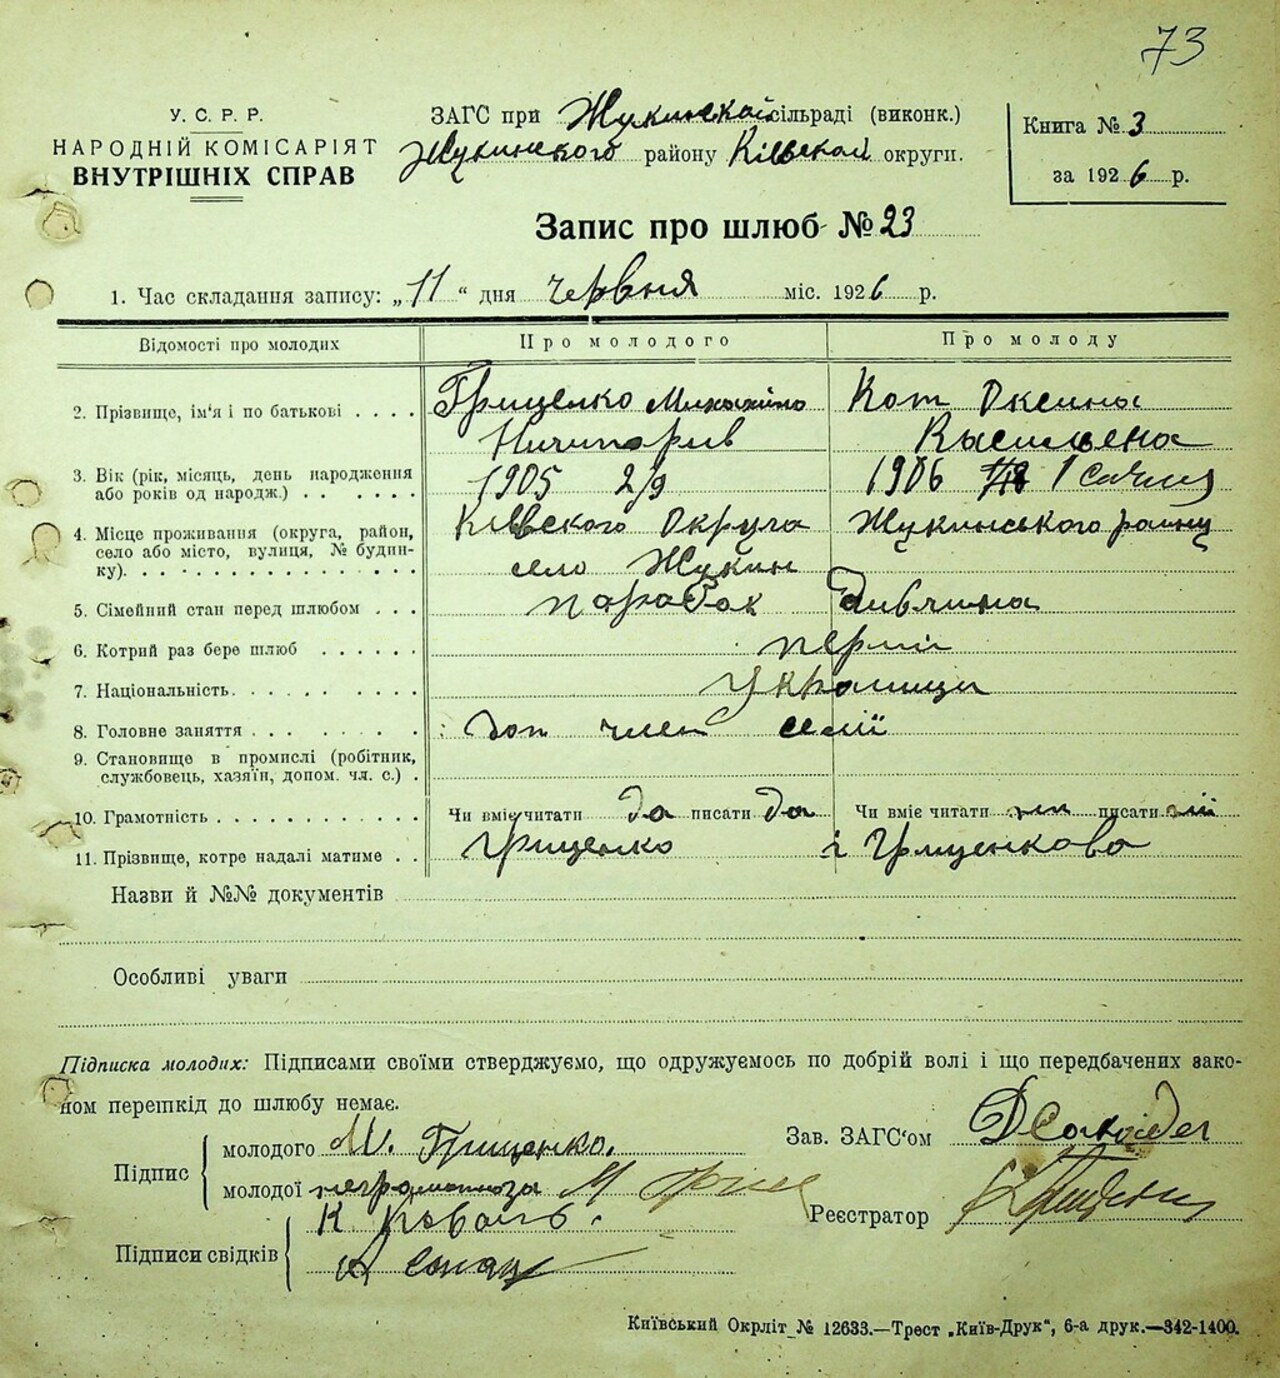 73
У. С. Р. Р.
НАРОДНІЙ КОМІСАРІЯТ
ВНУТРІШНІХ СПРАВ
ЗАГС при Жукинской сільраді (виконк.)
Жукинского району Київской округи.
Книга № 3
за 1926 р.
Запис про шлюб № 23
1. Час складання запису: „11“ дня червня міс. 1926 р.
Відомості про молодих
Про молодого
Про молоду
2. Прізвище, ім'я і по батькові . . . .
Грищенко Михайло
Ничипорив
Кот Оксина
3. Вік (рік, місяць, день народження
або років од народж.) . . . . . .
1905 2/9
1906 1 Сичня
4. Місце проживання (округа, район,
село або місто, вулиця, № будин-
ку). . . . . . . . . . . . . . .
Київского Округа
село Жукин
Жукинського району
5. Сімейний стан перед шлюбом . . .
парабок
дивчина
6. Котрий раз бере шлюб . . . . . .
перший
7. Національність. . . . . . . . . .
Украинци
8. Головне заняття . . . . . . . .
доп член семії
9. Становище в промислі (робітник,
службовець, хазяїн, допом. чл. с.) .
10. Грамотність . . . . . . . . . . . .
Чи вміє читати да писати да
Чи вміє читати писати
11. Прізвище, котре надалі матиме . .
Грищенко
і Грищенкова
Назви й №№ документів
Особливі уваги
Підписка молодих: Підписами своїми стверджуємо, що одружуємось по добрій волі і що передбачених зако-
ном перешкід до шлюбу немає.
Підпис
молодого М. Грищенко.
молодої неграмотноза
Зав. ЗАГС'ом
Реєстратор
Підписи свідків
К Коваль.
Київський Окрліт № 12633.—Трест „Київ-Друк“, 6-а друк.—342-1400.